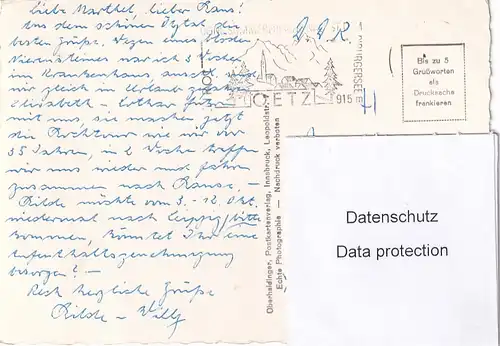 Liebe Marthel, lieber Hans!
Aus dem schönen Ötztal die
besten Grüße. Wegen eines blöden
Nierensteines war ich 3 Wochen
im Krankenhaus, anschl. sind
wir gleich in Urlaub gefahren
Elisabeth - Lothar
mit uns, sie machen jetzt
die Hochtour wie wir vor
35 Jahren, in 1 Woche treffen
wir uns wieder und fahren
zusammen nach Hause.
Hilde möchte vom 3. - 12. Okt.
wiedermal nach Leipzig bitte
kommen, könntet Ihr eine
Aufenthaltsgenehmigung
besorgen? -
Recht herzliche Grüße
Hilde - Willy
Oberhaidinger, Postkartenverlag, Innsbruck, Leopoldstr.
Echte Photographie Nachdruck verboten
D.D.R.
OETZ
915 m
Bis zu 5
Grußworten
als
Drucksache
frankieren
Datenschutz
Data protection